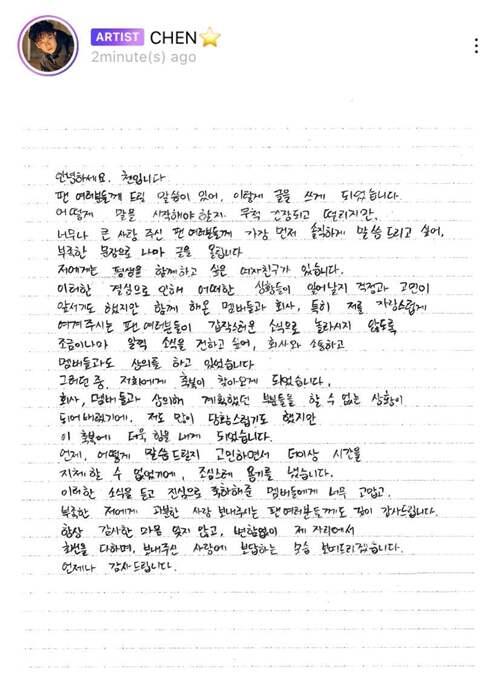 ARTIST CHEN
2minute(s) ago
안녕하세요. 첸입니다.
팬 여러분들께 드릴 말씀이 있어, 이렇게 글을 쓰게 되었습니다.
어떻게 말을 시작해야 할지 무척 긴장되고 떨리지만,
너무나 큰 사랑 주신 팬 여러분들께 가장 먼저 솔직하게 말씀 드리고 싶어,
부족한 문장으로 나마 글을 올립니다
저에게는 평생을 함께하고 싶은 여자친구가 있습니다.
이러한 결심으로 인해 어떠한 상황들이 일어날지 걱정과 고민이
앞서기도 했지만 함께 해온 멤버들과 회사, 특히 저를 자랑스럽게
여겨주시는 팬 여러분들이 갑작스러운 소식으로 놀라시지 않도록
조금이나마 일찍 소식을 전하고 싶어, 회사와 소통하고
멤버들과도 상의를 하고 있었습니다
그러던 중, 저희에게 축복이 찾아오게 되었습니다.
회사, 멤버들과 상의해 계획했던 부분들을 할 수 없는 상황이
되어버렸기에, 저도 많이 당황스럽기도 했지만
이 축복에 더욱 힘을 내게 되었습니다.
언제, 어떻게 말씀드릴지 고민하면서 더이상 시간을
지체 할 수 없었기에, 조심스레 용기를 냈습니다.
이러한 소식을 듣고 진심으로 축하해준 멤버들에게 너무 고맙고,
부족한 저에게 과분한 사랑 보내주시는 팬 여러분들께도 깊이 감사드립니다.
항상 감사한 마음 잊지 않고, 변함없이 제 자리에서
최선을 다하며, 보내주신 사랑에 보답하는 모습 보여드리겠습니다.
언제나 감사드립니다.